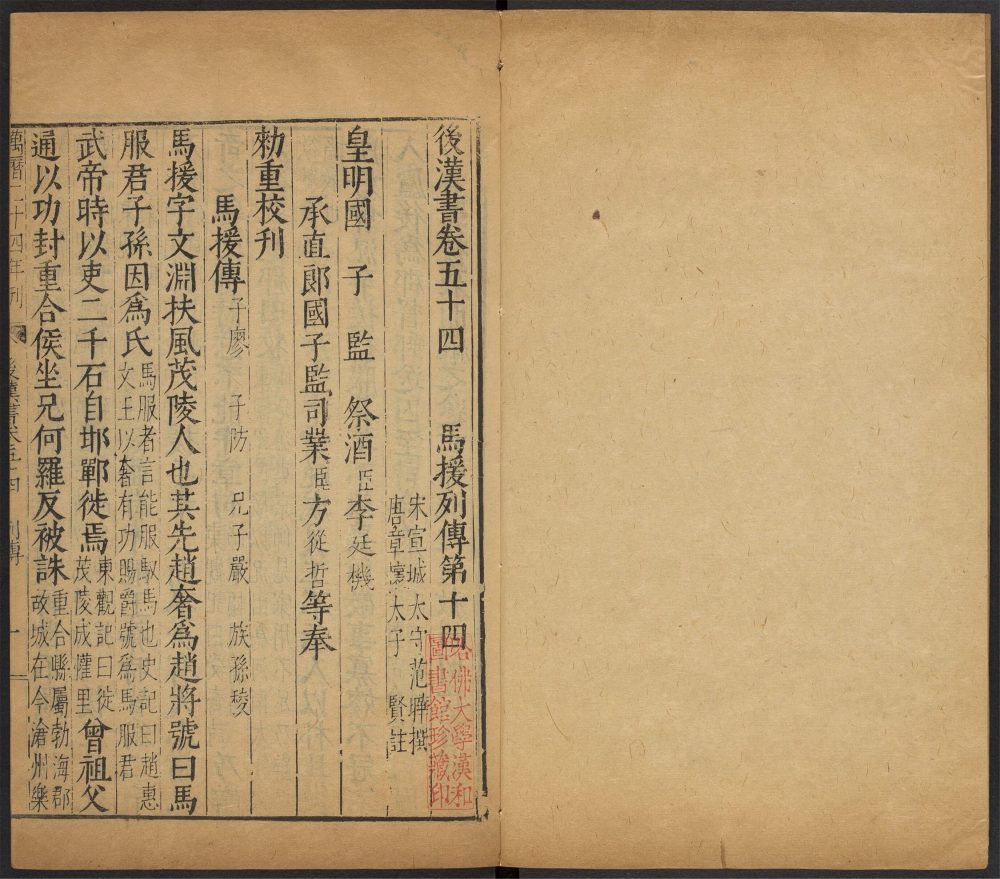 後漢書卷五十四 馬援列傳第十四
宋宣城太守范曄撰
唐章懷太子賢註
皇明國子監祭酒臣李廷機
承直郎國子監司業臣方從哲等奉
勅重校刊
馬援傳 子廖 子防 兄子嚴 族孫稜
馬援字文淵扶風茂陵人也其先趙奢爲趙將號曰馬
服君子孫因爲氏
馬服者言能服馭馬也史記曰趙惠
文王以奢有功賜爵號爲馬服君
武帝時以吏二千石自邯鄲徙焉
東觀記曰徙
茂陵成懽里
曾祖父
通以功封重合侯坐兄何羅反被誅
重合縣屬勃海郡
故城在今滄州樂
萬曆二十四年刊
後漢書卷五十四 列傳 一
哈佛大學漢和
圖書館珍藏印